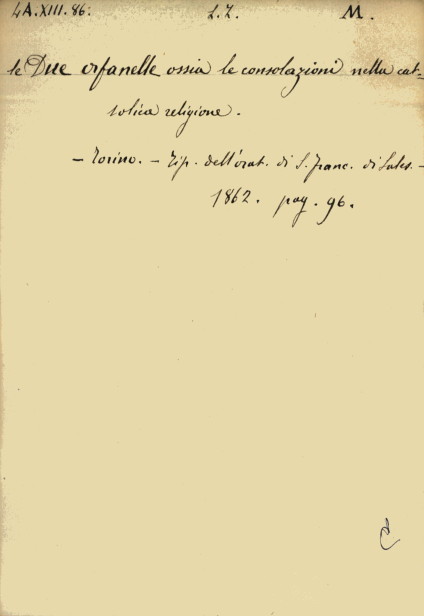 4A.XIII.86. L.Z. M.
le Due orfanelle ossia le consolazioni nella cat-
tolica religione.
— Torino. — Tip. dell'orat. di S. Franc. di Sales. —
1862. pag. 96.